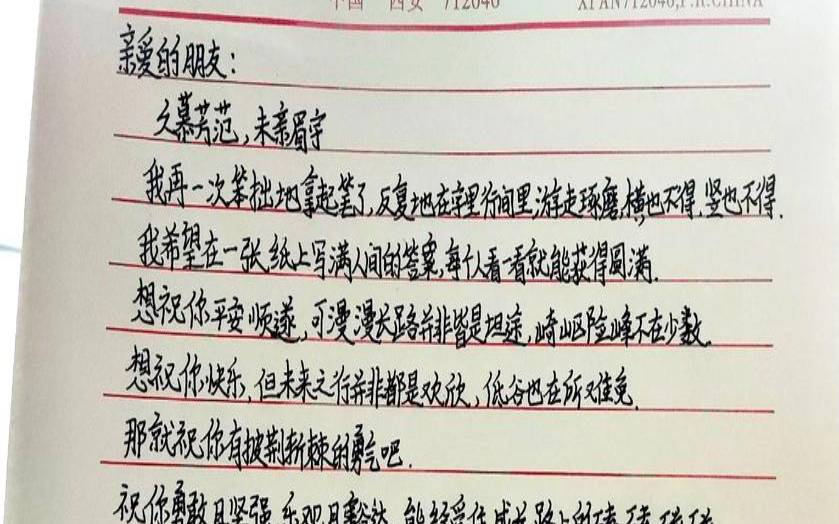 中国 西安 712046 XI'AN712046,P.R.CHINA
亲爱的朋友：
久慕芳范，未亲眉宇
我再一次笨拙地拿起笔了，反复地在字里行间里游走琢磨，横也不得，竖也不得．
我希望在一张纸上写满人间的答案，每个人看一看就能获得圆满．
想祝你平安顺遂，可漫漫长路并非皆是坦途，崎岖险峰不在少数．
想祝你快乐，但未来之行并非都是欢欣，低谷也在所难免．
那就祝你有披荆斩棘的勇气吧．
祝你勇敢且坚强，乐观且豁达，能经受住成长路上的